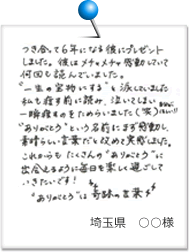 つき合って6年になる彼にプレゼント
しました。彼はメチャメチャ感動していて
何回も読んでいました。
"一生の宝物にする"と涙していました
私も渡す前に読み、泣いてしまい
一瞬渡すのをためらいました(笑)
"ありがとう"という名前にまず感動し
素晴らしい言葉だと改めて実感しました。
これからもたくさんの"ありがとう"に
出会えるように毎日を楽しく過ごして
いきたいです！
"ありがとう"は奇跡の言葉
埼玉県 ○○様